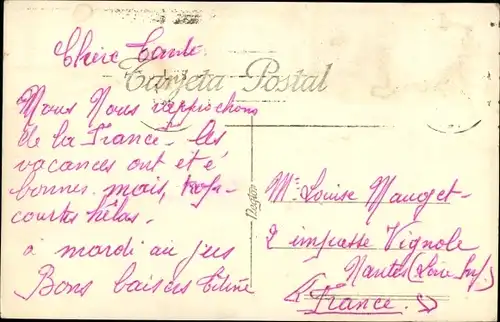 Chère Tante.
Tarjeta Postal
Nous Nous rapprochons
de la France - les
vacances ont été
bonnes mais, trop
courtes hélas.
à mardi au
Bons baisers
Louise Mauget
2 impasse Vignole
Nantes (Loire Inf.)
France.